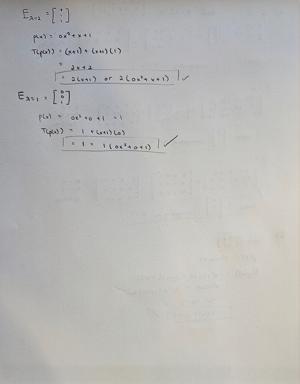 E λ=2 = [0 1 1]
p(x) = 0x² + x + 1
T(p(x)) = (x+1) + (x+1)(1)
= 2x + 2
= 2(x+1) or 2(0x² + x + 1) ✓
E λ=1 = [0 0 1]
p(x) = 0x² + 0 + 1 = 1
T(p(x)) = 1 + (x+1)(0)
= 1 = 1(0x² + 0 + 1) ✓